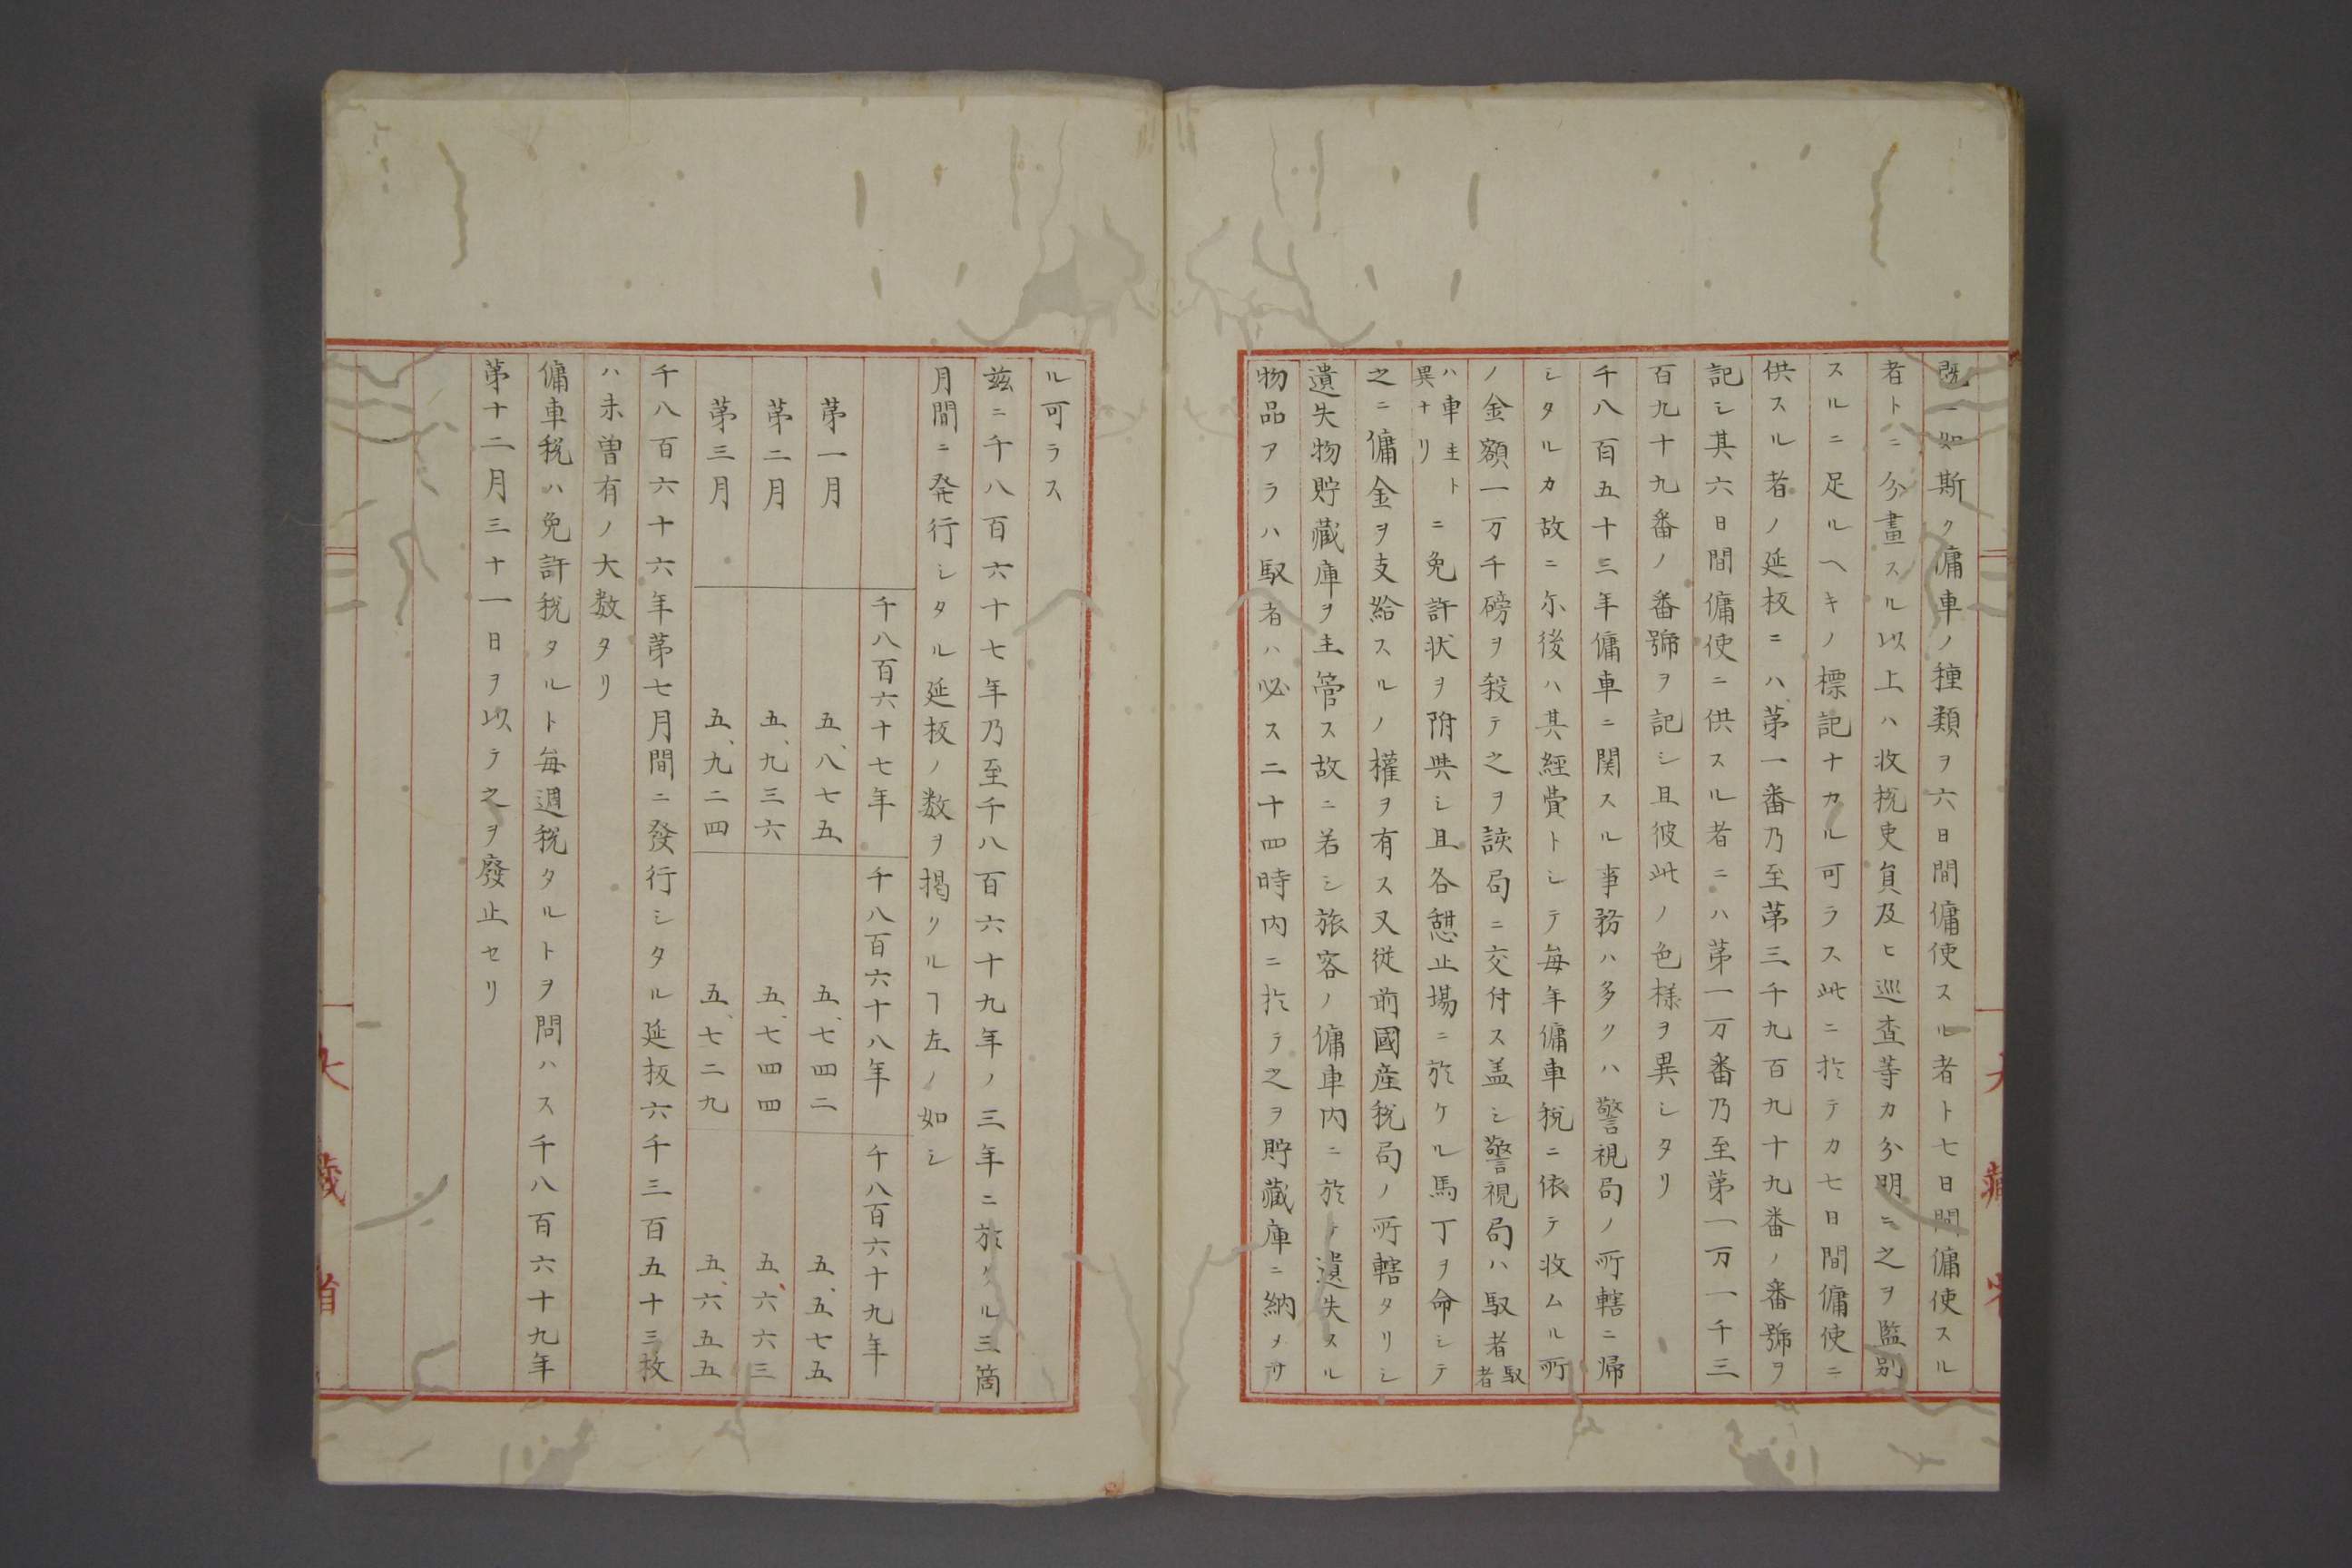 既ニ如斯ク傭車ノ種類ヲ六日間傭使スル者ト七日間傭使スル
者トニ分畫スル以上ハ收税吏員及ヒ巡査等カ分明ニ之ヲ監別
スルニ足ルヘキノ標記ナカル可ラス此ニ於テカ七日間傭使ニ
供スル者ノ延板ニハ第一番乃至第三千九百九十九番ノ番號ヲ
記シ其六日間傭使ニ供スル者ニハ第一万番乃至第一万一千三
百九十九番ノ番號ヲ記シ且彼此ノ色様ヲ異シタリ
千八百五十三年傭車ニ関スル事務ハ多クハ警視局ノ所轄ニ帰
シタルカ故ニ尓後ハ其經費トシテ毎年傭車税ニ依テ收ムル所
ノ金額一万千磅ヲ殺テ之ヲ該局ニ交付ス盖シ警視局ハ馭者馭者
ハ車主ト異ナリニ免許状ヲ附與シ且各憇止場ニ於ケル馬丁ヲ命シテ
之ニ傭金ヲ支給スルノ權ヲ有ス又従前國産税局ノ所轄タリシ
遺失物貯藏庫ヲ主管ス故ニ若シ旅客ノ傭車内ニ於テ遺失スル
物品アラハ馭者ハ必ス二十四時内ニ於テ之ヲ貯藏庫ニ納メサ
ル可ラス
茲ニ千八百六十七年乃至千八百六十九年ノ三年ニ於ケル三箇
月間ニ発行シタル延板ノ数ヲ掲クルヿ左ノ如シ
千八百六十七年 千八百六十八年 千八百六十九年
第一月 五、八七五 五、七四二 五、五七五
第二月 五、九三六 五、七四四 五、六六三
第三月 五、九二四 五、七二九 五、六五五
千八百六十六年第七月間ニ發行シタル延板六千三百五十三枚
ハ未曽有ノ大数タリ
傭車税ハ免許税タルト毎週税タルトヲ問ハス千八百六十九年
第十二月三十一日ヲ以テ之ヲ廢止セリ
大藏省